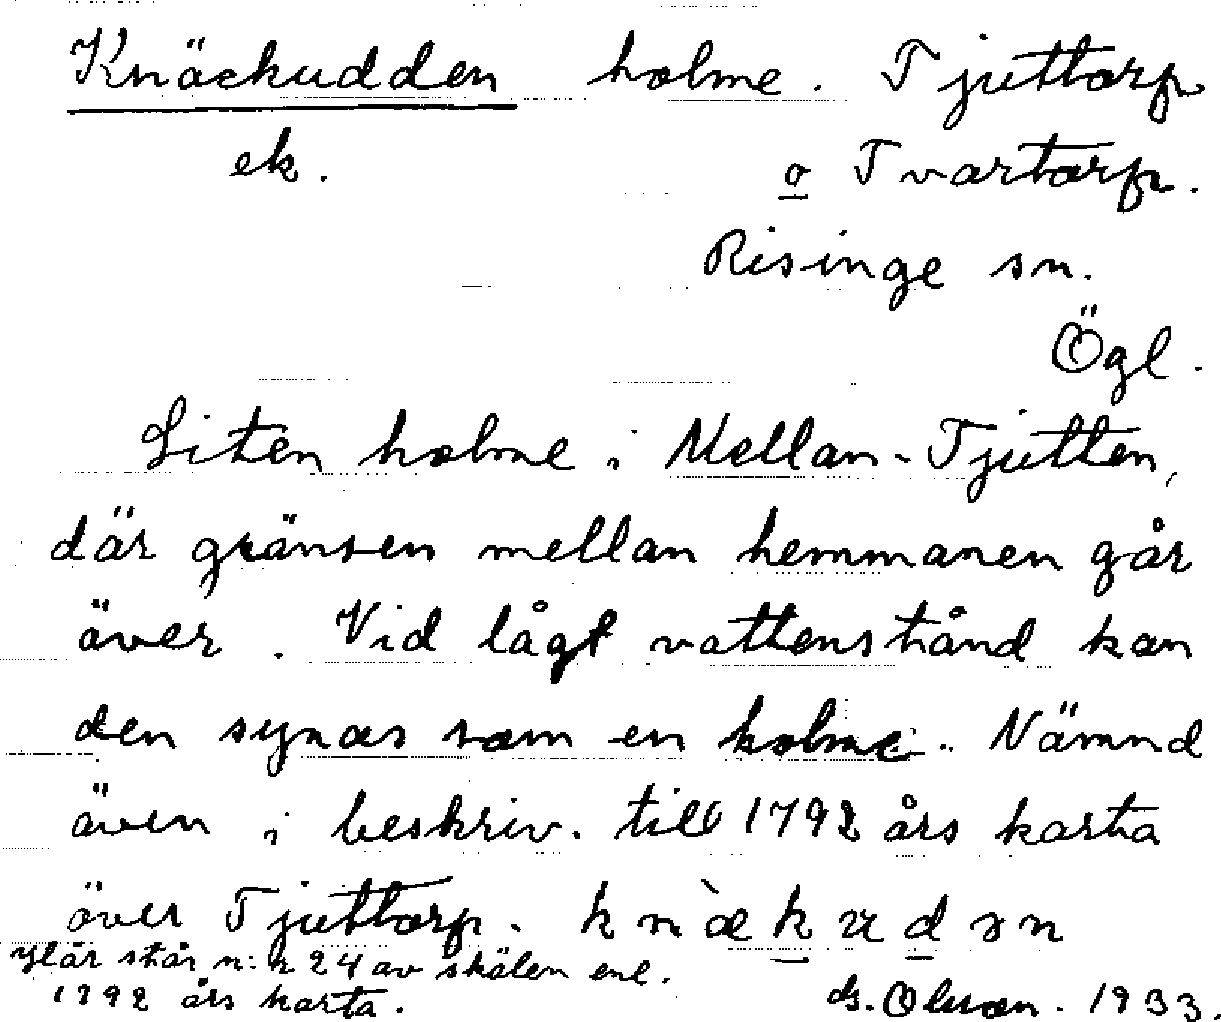 Knäckudden holme. Tjuttorp
ek. o Tvartorp.
Risinge sn.
Ögl.
Liten holme i Mellan-Tjutten,
där gränsen mellan hemmanen går
över. Vid lågt vattenstånd kan
den synas som en holme. Nämnd
även i beskriv. till 1792 års karta
över Tjuttorp. knækudən
Här står n:r 24 av skälen enl.
1792 års karta. G. Olsson. 1933.